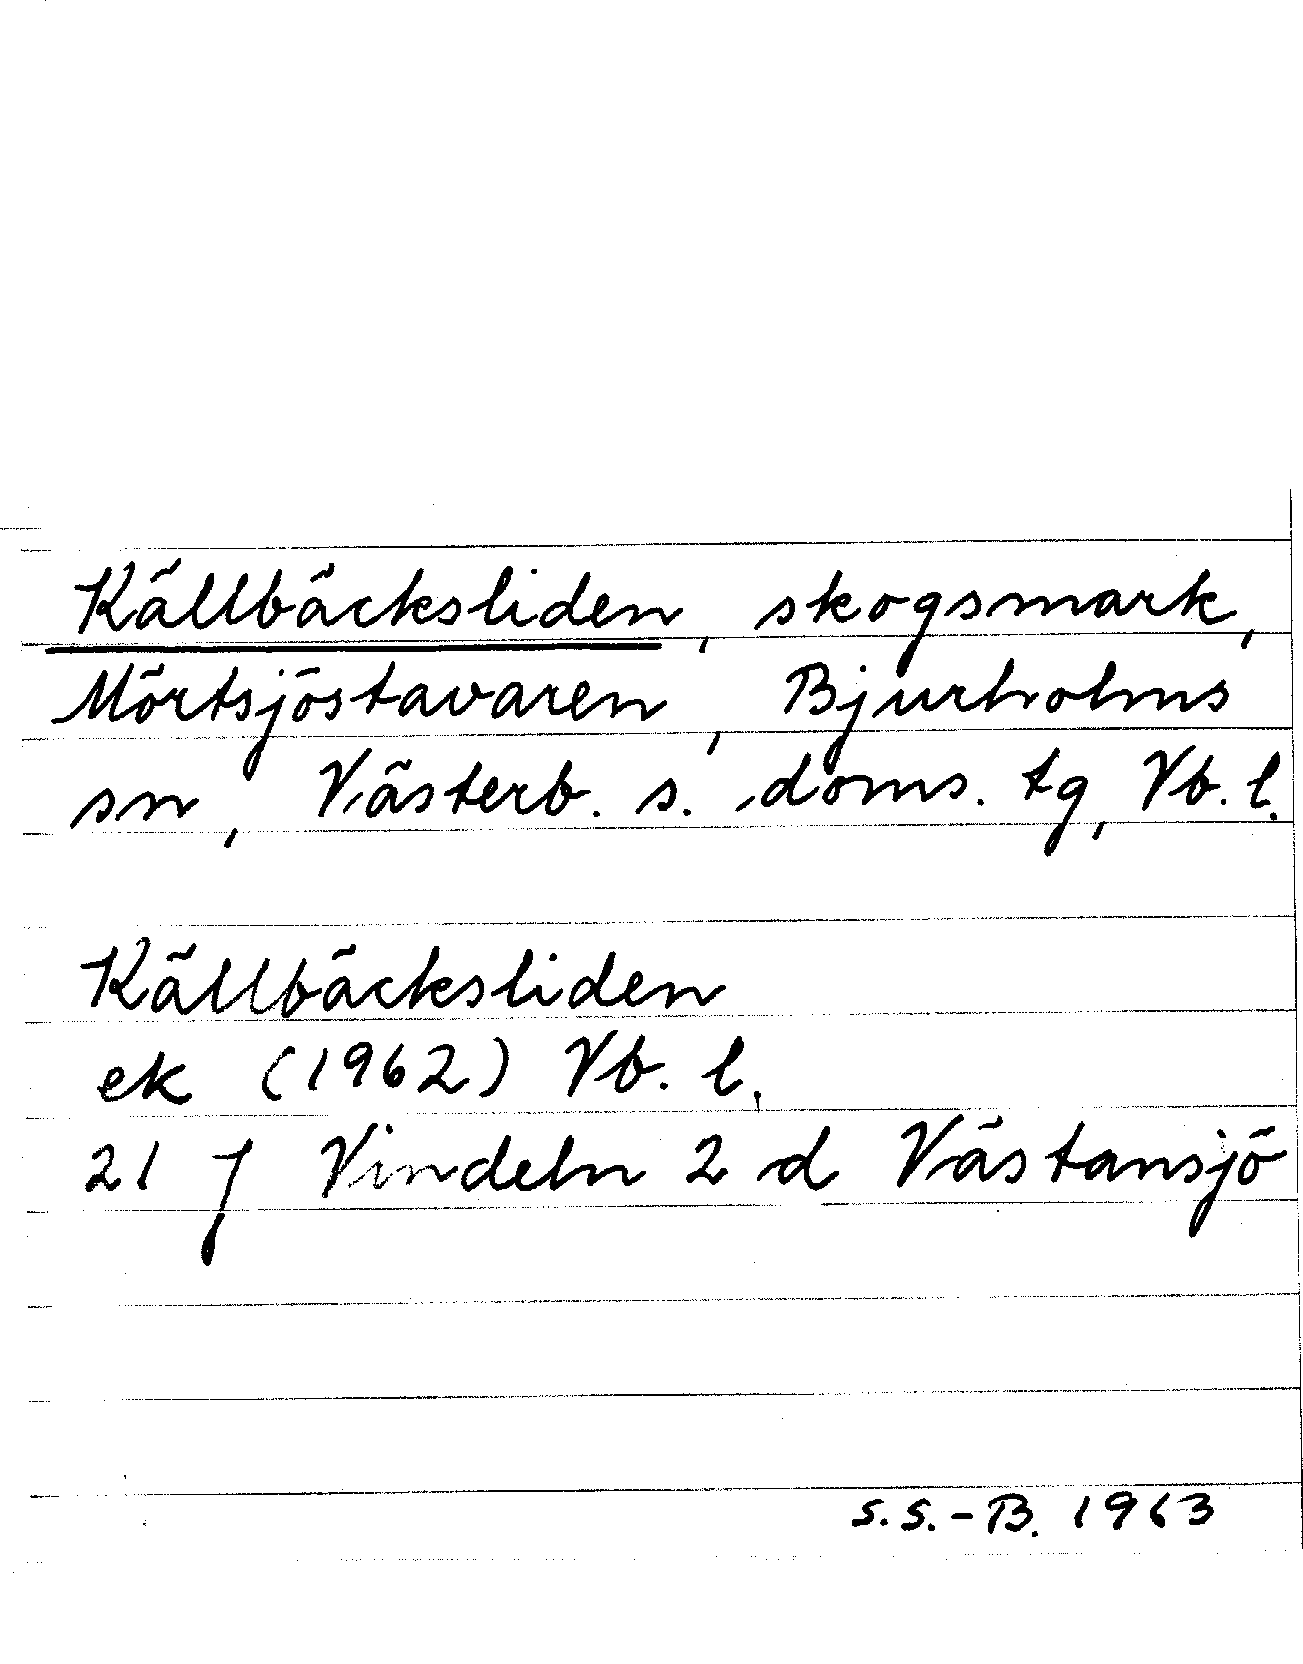 Källbäcksliden, skogsmark,
Mörtsjöstavaren, Bjurholms
sn, Västerb. s. doms. tg, Vb. l.
Källbäcksliden
ek (1962) Vb. l.
21 J Vindeln 2 d Västansjö
S.S.-B. 1963